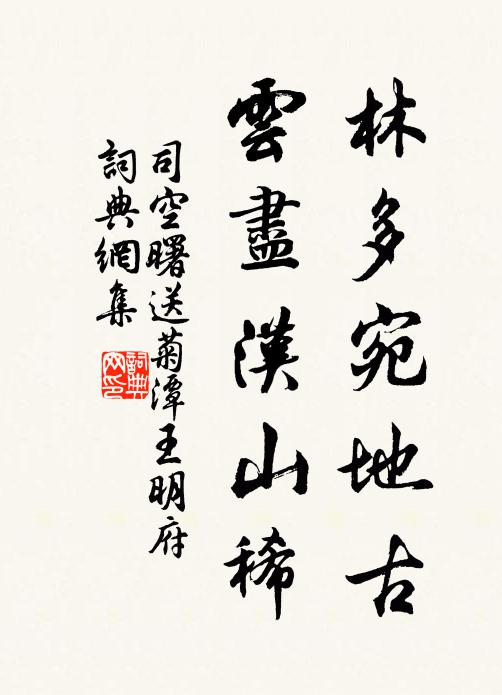 林多宛地古
雲盡漢山稀
司空曙送菊潭王明府
詞典網集
詞典網印